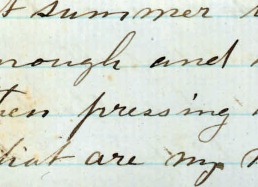 summer
nough and
pressing
hat are my